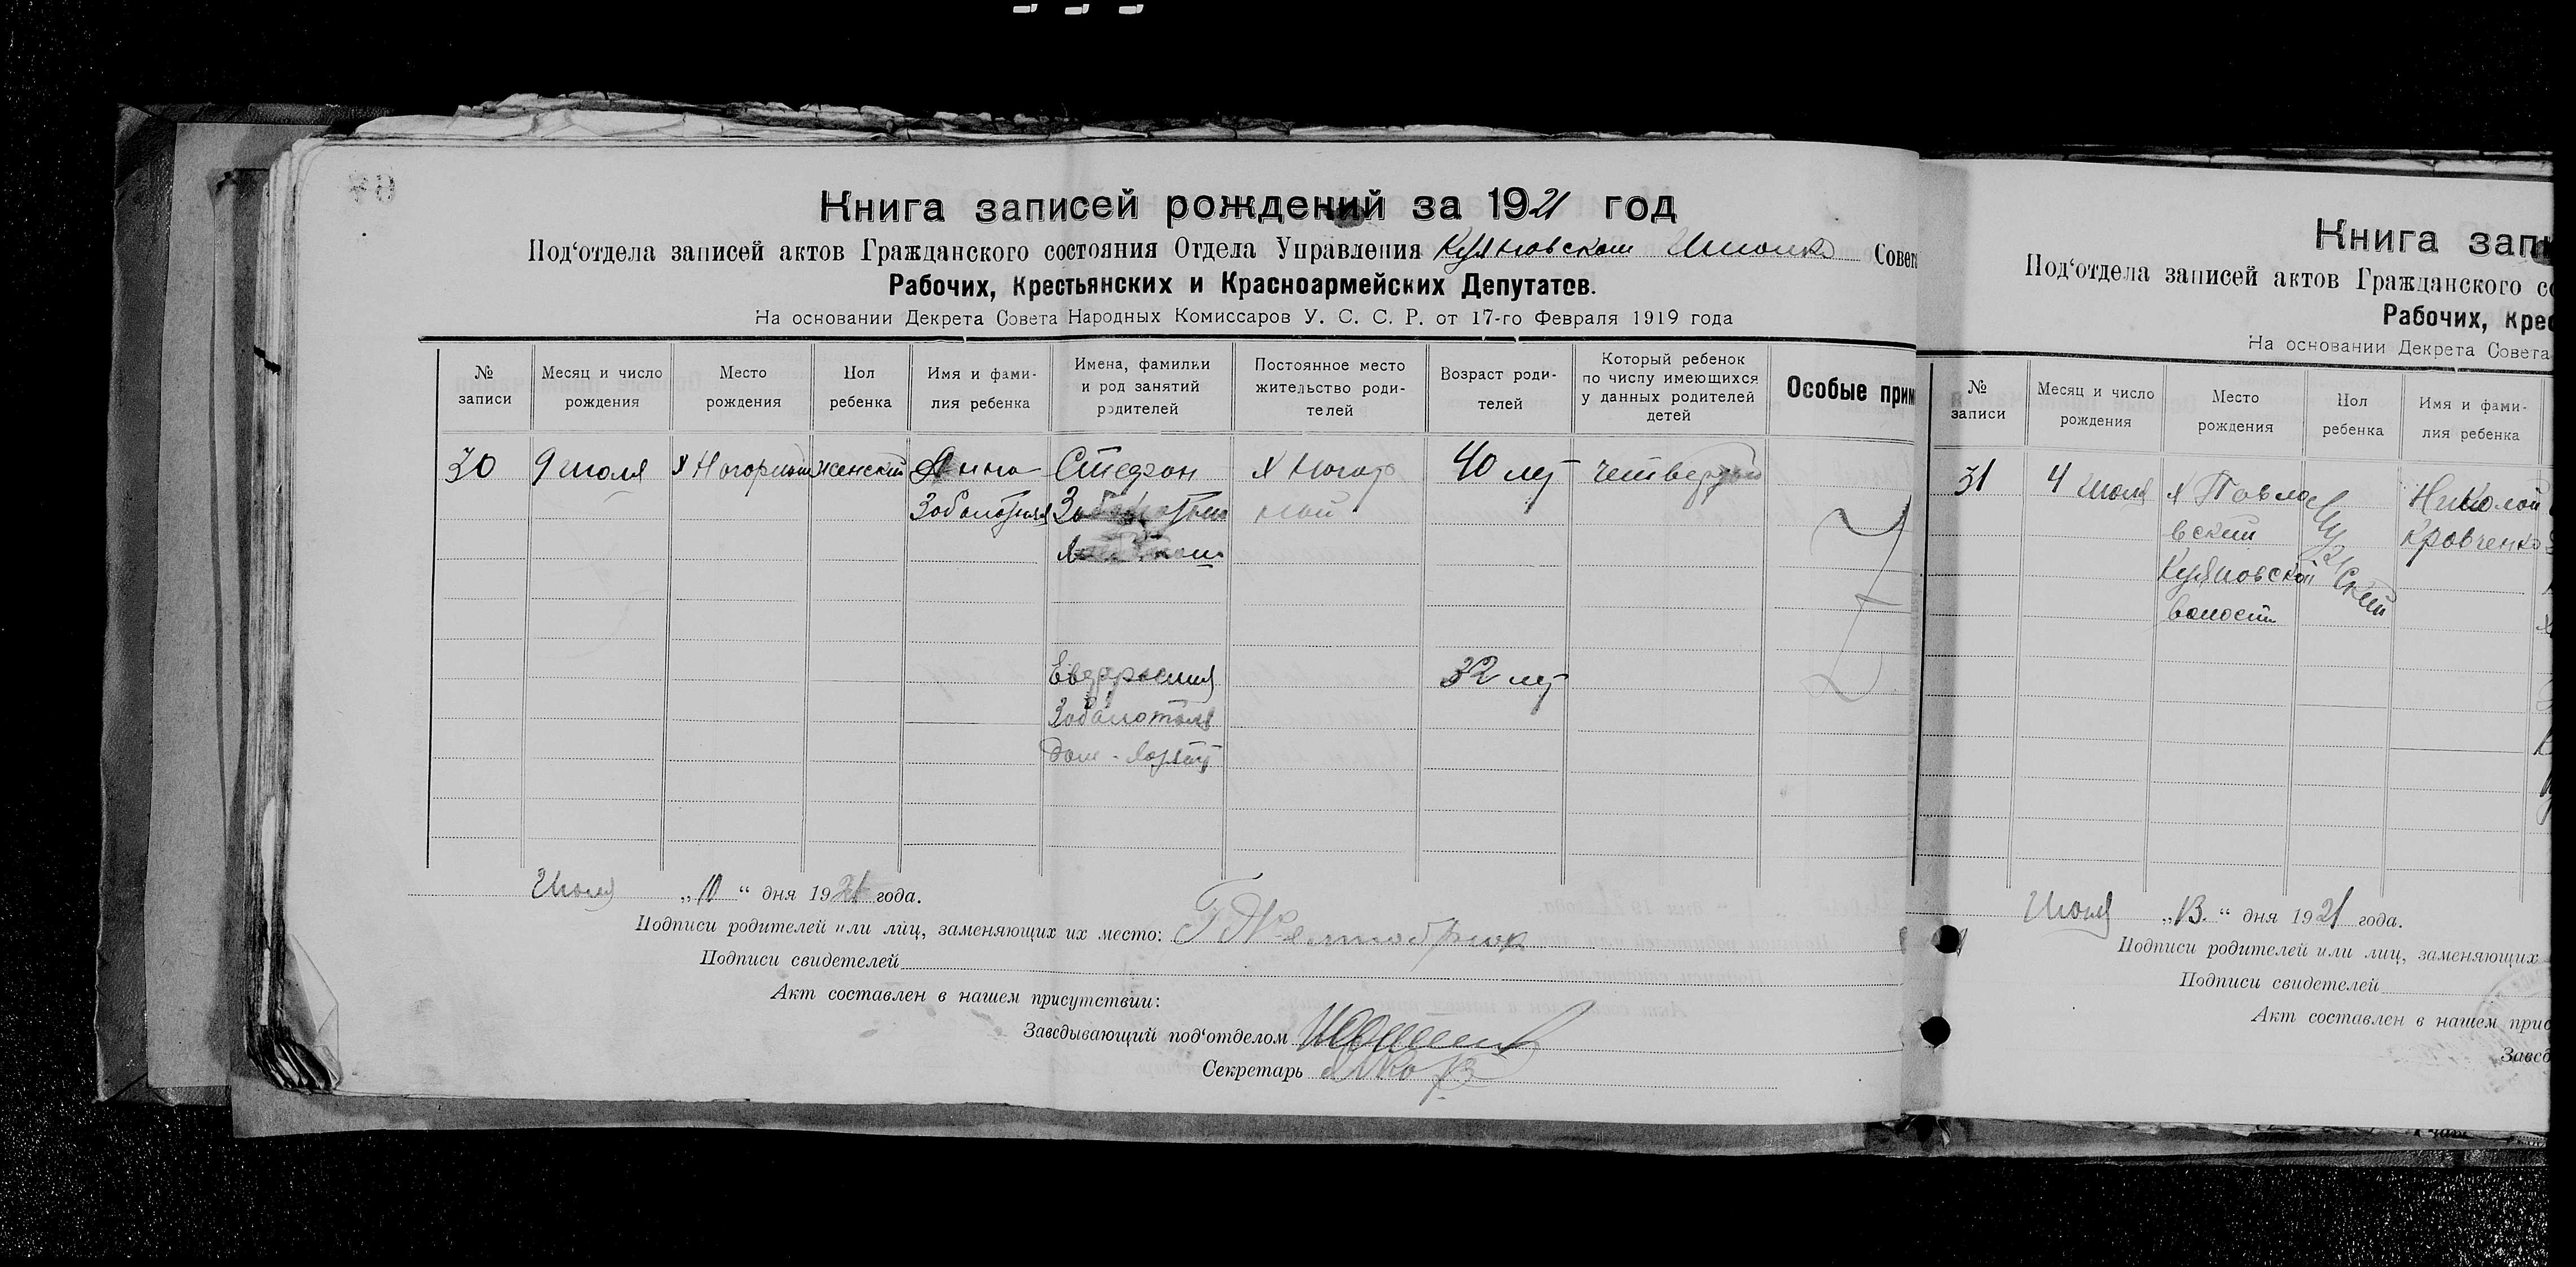 Книга записей рождений за 1921 год
Под‘отдела записей актов Гражданского состояния Отдела Управления Куяновском Совета
Рабочих, Крестьянских и Красноармейских Депутатов.
На основании Декрета Совета Народных Комиссаров У. С. С. Р. от 17-го Февраля 1919 года
№ записи
Месяц и число рождения
Место рождения
Пол ребенка
Имя и фами-
лия ребенка
Имена, фамилии
и род занятий
родителей
Постоянное место
жительство роди-
телей
Возраст роди-
телей
Который ребенок
по числу имеющихся
у данных родителей
детей
Особые прим
30
9 июля
х Нагорный
женский
Анна
Заболотняя
Стефан
х Нагор
ный
40 лет
четвертый
Евдокия
Заболотняя
32 лет
Июля „10“ дня 1921 года.
Подписи родителей или лиц, заменяющих их место:
Подписи свидетелей
Акт составлен в нашем присутствии:
Заведывающий под‘отделом
Секретарь
Книга запи
Под‘отдела записей актов Гражданского со
Рабочих, Крес
На основании Декрета Совета
№ записи
Месяц и число
рождения
Место
рождения
Пол
ребенка
Имя и фами-
лия ребенка
31
4 июля
х Павло
вский
Куяновской
волости
Мужский
Николай
Кравченко
Июля „13.“ дня 1921 года.
Подписи родителей или лиц, заменяющих
Подписи свидетелей
Акт составлен в нашем прис
Завед